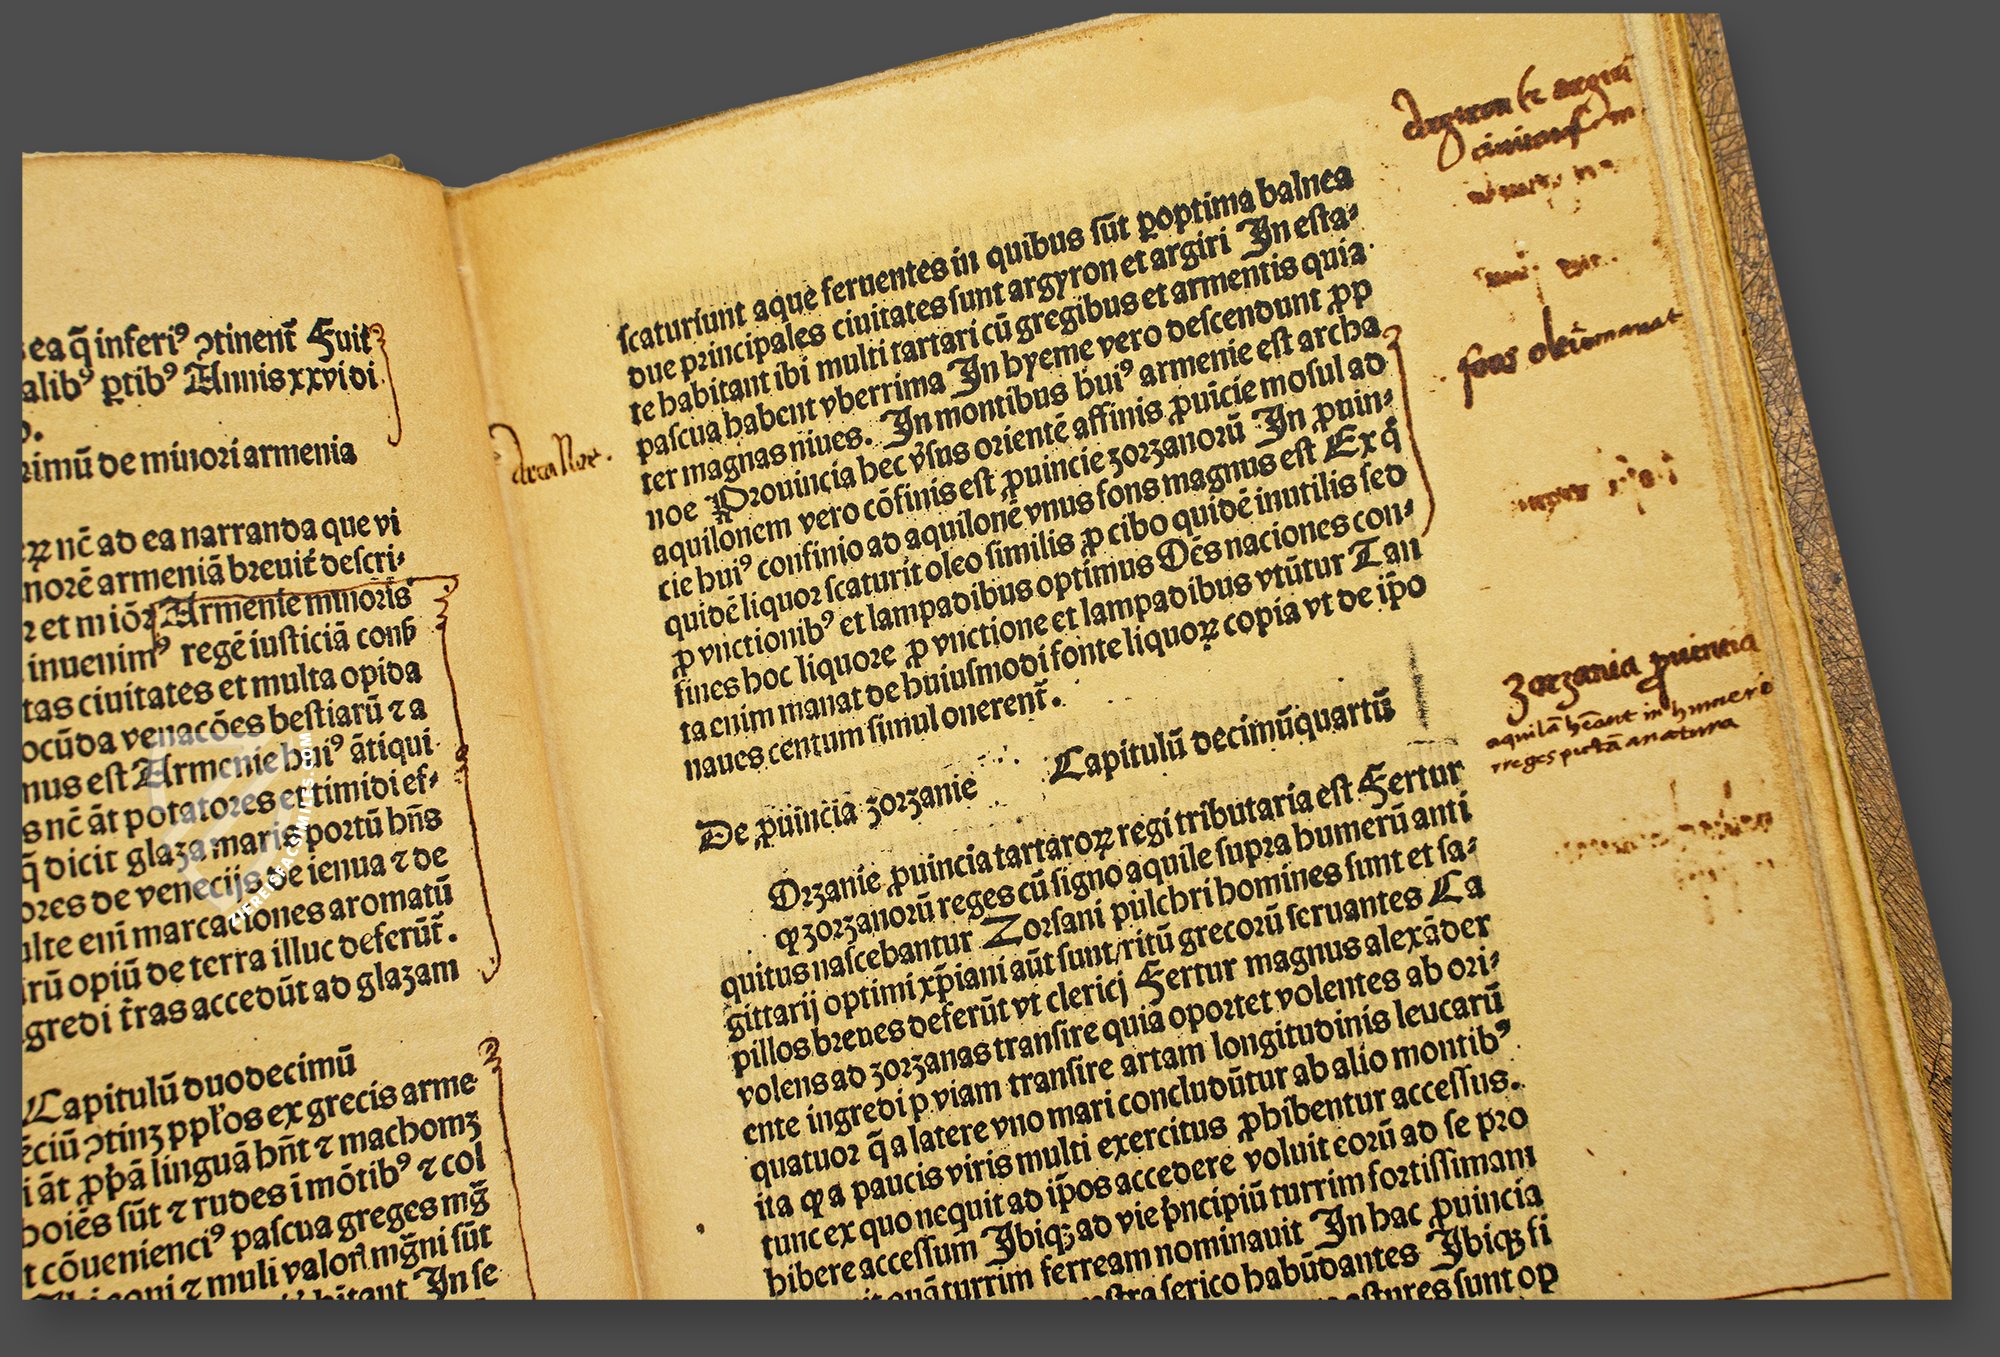 ea q̃ inferiꝰ ɔtinent̃ Fuit
alibꝰ ꝑtibꝰ Annis xxvi di
o.
rimũ de minori armenia
nc̃ ad ea narranda que vi
norẽ armeniã breuit̃ descri⸗
et miõꝝ Armenie minoris
inuenimꝰ regẽ iusticiã conẞ
tas ciuitates et multa opida
ocũda venacões bestiarũ ⁊ a
mus est Armenie huiꝰ ãtiqui
s nc̃ ãt potatores et timidi ef⸗
q̃ dicit glaza maris portũ hñs
ores de venecijs de ienua ⁊ de
ulte eni marcaciones aromatũ
rũ opiũ de terra illuc deferũt̃.
gredi t̃ras accedũt ad glazam
Capitulũ duodecimũ
ciũ ɔtinʒ ppl'os ex grecis arme
i ãt ꝓpã linguã hñt ⁊ machomʒ
boiẽs sũt ⁊ rudes ĩ mõtibꝰ ⁊ col
t cõuenienciꝰ pascua greges mg̃
equi ⁊ muli valoꝝ mg̃ni sũt
hĩtant In se
scaturiunt aque feruentes in quibus sũt ꝑoptima balnea
due principales ciuitates sunt argyron et argiri In esta⸗
te habitant ibi multi tartari cũ gregibus et armentis quia
pascua habent vberrima In hyeme vero descendunt ꝓp
ter magnas niues. In montibus huiꝰ armenie est archa
noe Prouincia hec v̾sus orientẽ affinis ꝓuicie mosul ad
aquilonem vero cõfinis est ꝓuincie zorzanorũ In ꝓuin⸗
cie huiꝰ confinio ad aquilonẽ vnus fons magnus est Ex q̊
quidẽ liquor scaturit oleo similis ꝓ cibo quidẽ inutilis sed
ꝓ vnctionibꝰ et lampadibus optimus Oẽs naciones con⸗
fines hoc liquore ꝓ vnctione et lampadibus vtũtur Tan
ta enim manat de huiusmodi fonte liquoꝝ copia vt de ip̃o
naues centum simul onerent̃.
De ꝓuincia zorzanie Capitulũ decimũquartũ
Orzanie ꝓuincia tartaroꝝ regi tributaria est Fertur
ꝙ zorzanorũ reges cũ signo aquile supra humerũ anti
quitus nascebantur Zorsani pulchri homines sunt et sa⸗
gittarij optimi xp̃iani aũt sunt/ritũ grecorũ seruantes Ca
pillos breues deferũt vt clericj Fertur magnus alexãder
volens ad zorzanas transire quia oportet volentes ab ori⸗
ente ingredi p viam transire artam longitudinis leucarũ
quatuor q̃ a latere vno mari concludũtur ab alio montibꝰ
ita ꝙ a paucis viris multi exercitus ꝓhibentur accessus.
tunc ex quo nequit ad ip̃os accedere voluit eorũ ad se pro
hibere accessum Ibiqꝫ ad vie p̾ncipiũ turrim fortissimam
quã turrim ferream nominauit In hac ꝓuincia
serico habũdantes Ibiqꝫ fi
sunt op
arca Noe.
argiron et argiri
fons olei manat
Zorzania ꝓuincia
aquilã hẽant in humero
reges pictã a natura
ZIEREISFACSIMILES.COM